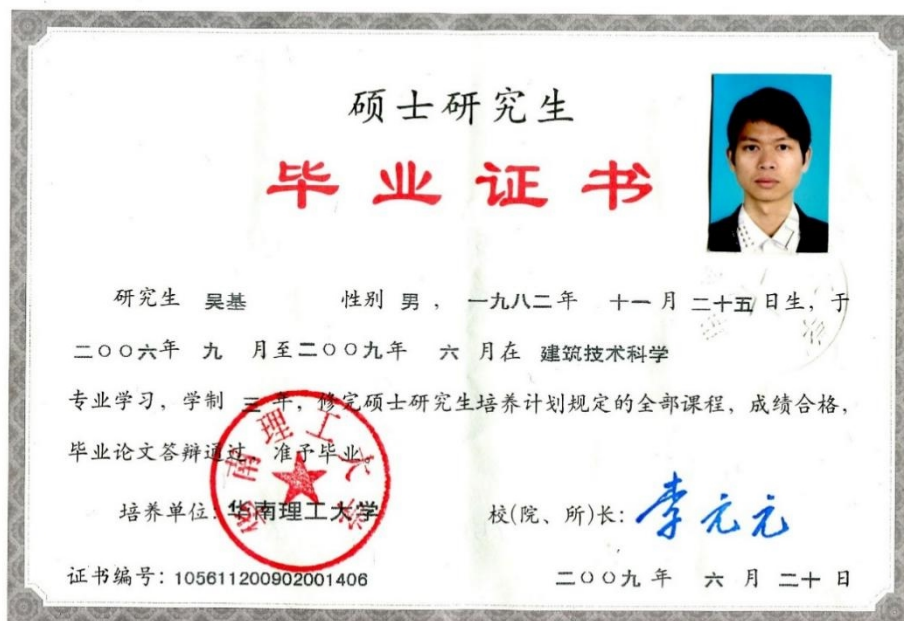 硕士研究生
毕业证书
研究生 吴基 性别 男 ， 一九八二年 十一 月 二十五 日生，于
二〇〇六年 九 月至二〇〇九年 六 月在 建筑技术科学
专业学习，学制 三 年，修完硕士研究生培养计划规定的全部课程，成绩合格，
毕业论文答辩通过，准予毕业。
培养单位：华南理工大学
校(院、所)长：李元元
证书编号：105611200902001406
二〇〇九 年 六 月 二十 日
华南理工大学